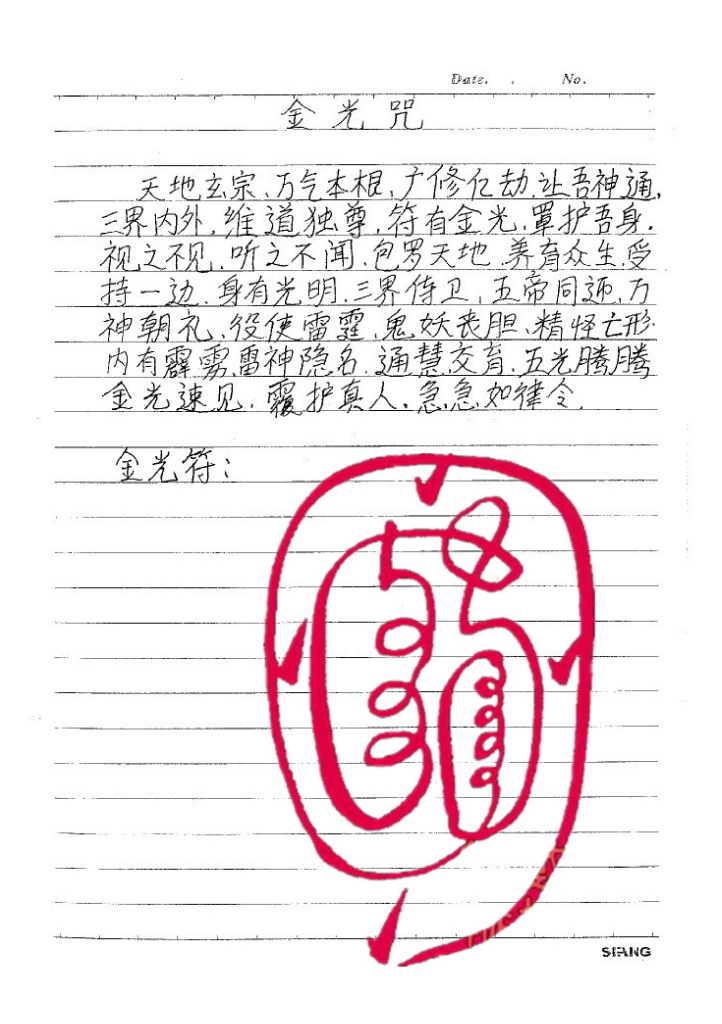 Date. . No.
金光咒
天地玄宗、万气本根,广修亿劫.让吾神通,
三界内外,维道独尊,符有金光,罩护吾身.
视之不见.听之不闻.包罗天地.养育众生.受
持一边.身有光明.三界侍卫,五帝同迊,万
神朝礼、役使雷霆、鬼妖丧胆、精怪亡形.
内有霹雳.雷神隐名.通慧交育.五光腾腾
金光速见.覆护真人.急急如律令.
金光符:
SIFANG